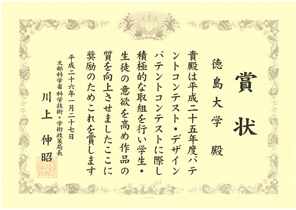 賞状
徳島大学 殿
貴殿は平成二十五年度パテ
ントコンテスト・デザイン
パテントコンテストに際し
積極的な取組を行い学生・
生徒の意欲を高め作品の
質を向上させましたここに
奨励のためこれを賞します
平成二十六年一月二十七日
文部科学省科学技術・学術政策局長
川上伸昭